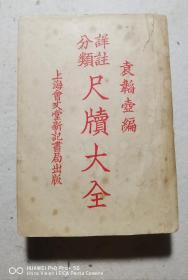 袁韜壺編
詳註
分類
尺牘大全
上海會文堂新記書局出版
HUAWEI P40 Pro 5G